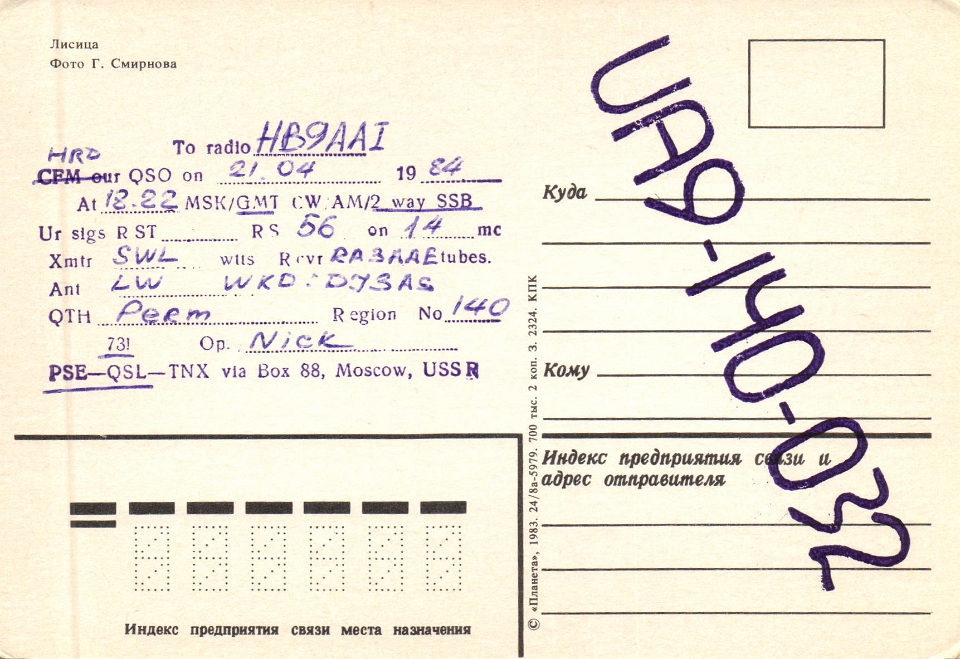 Лисица
Фото Г. Смирнова
To radio HB9AAI
HRD
CFM our QSO on 21.04 1984
At 18.22 MSK/GMT CW AM/2 way SSB
Ur sigs RST RS 56 on 14 mc
Xmtr SWL wtts Rcvr RA3AAE tubes.
Ant LW WKD:
QTH Perm Region No 140
73! Op. Nick
PSE—QSL—TNX via Box 88, Moscow, USSR
Индекс предприятия связи места назначения
© «Планета», 1983. 24/8а-5979. 700 тыс. 2 коп. З. 2324. КПК
UA9-140-032
Куда
Кому
Индекс предприятия связи и
адрес отправителя